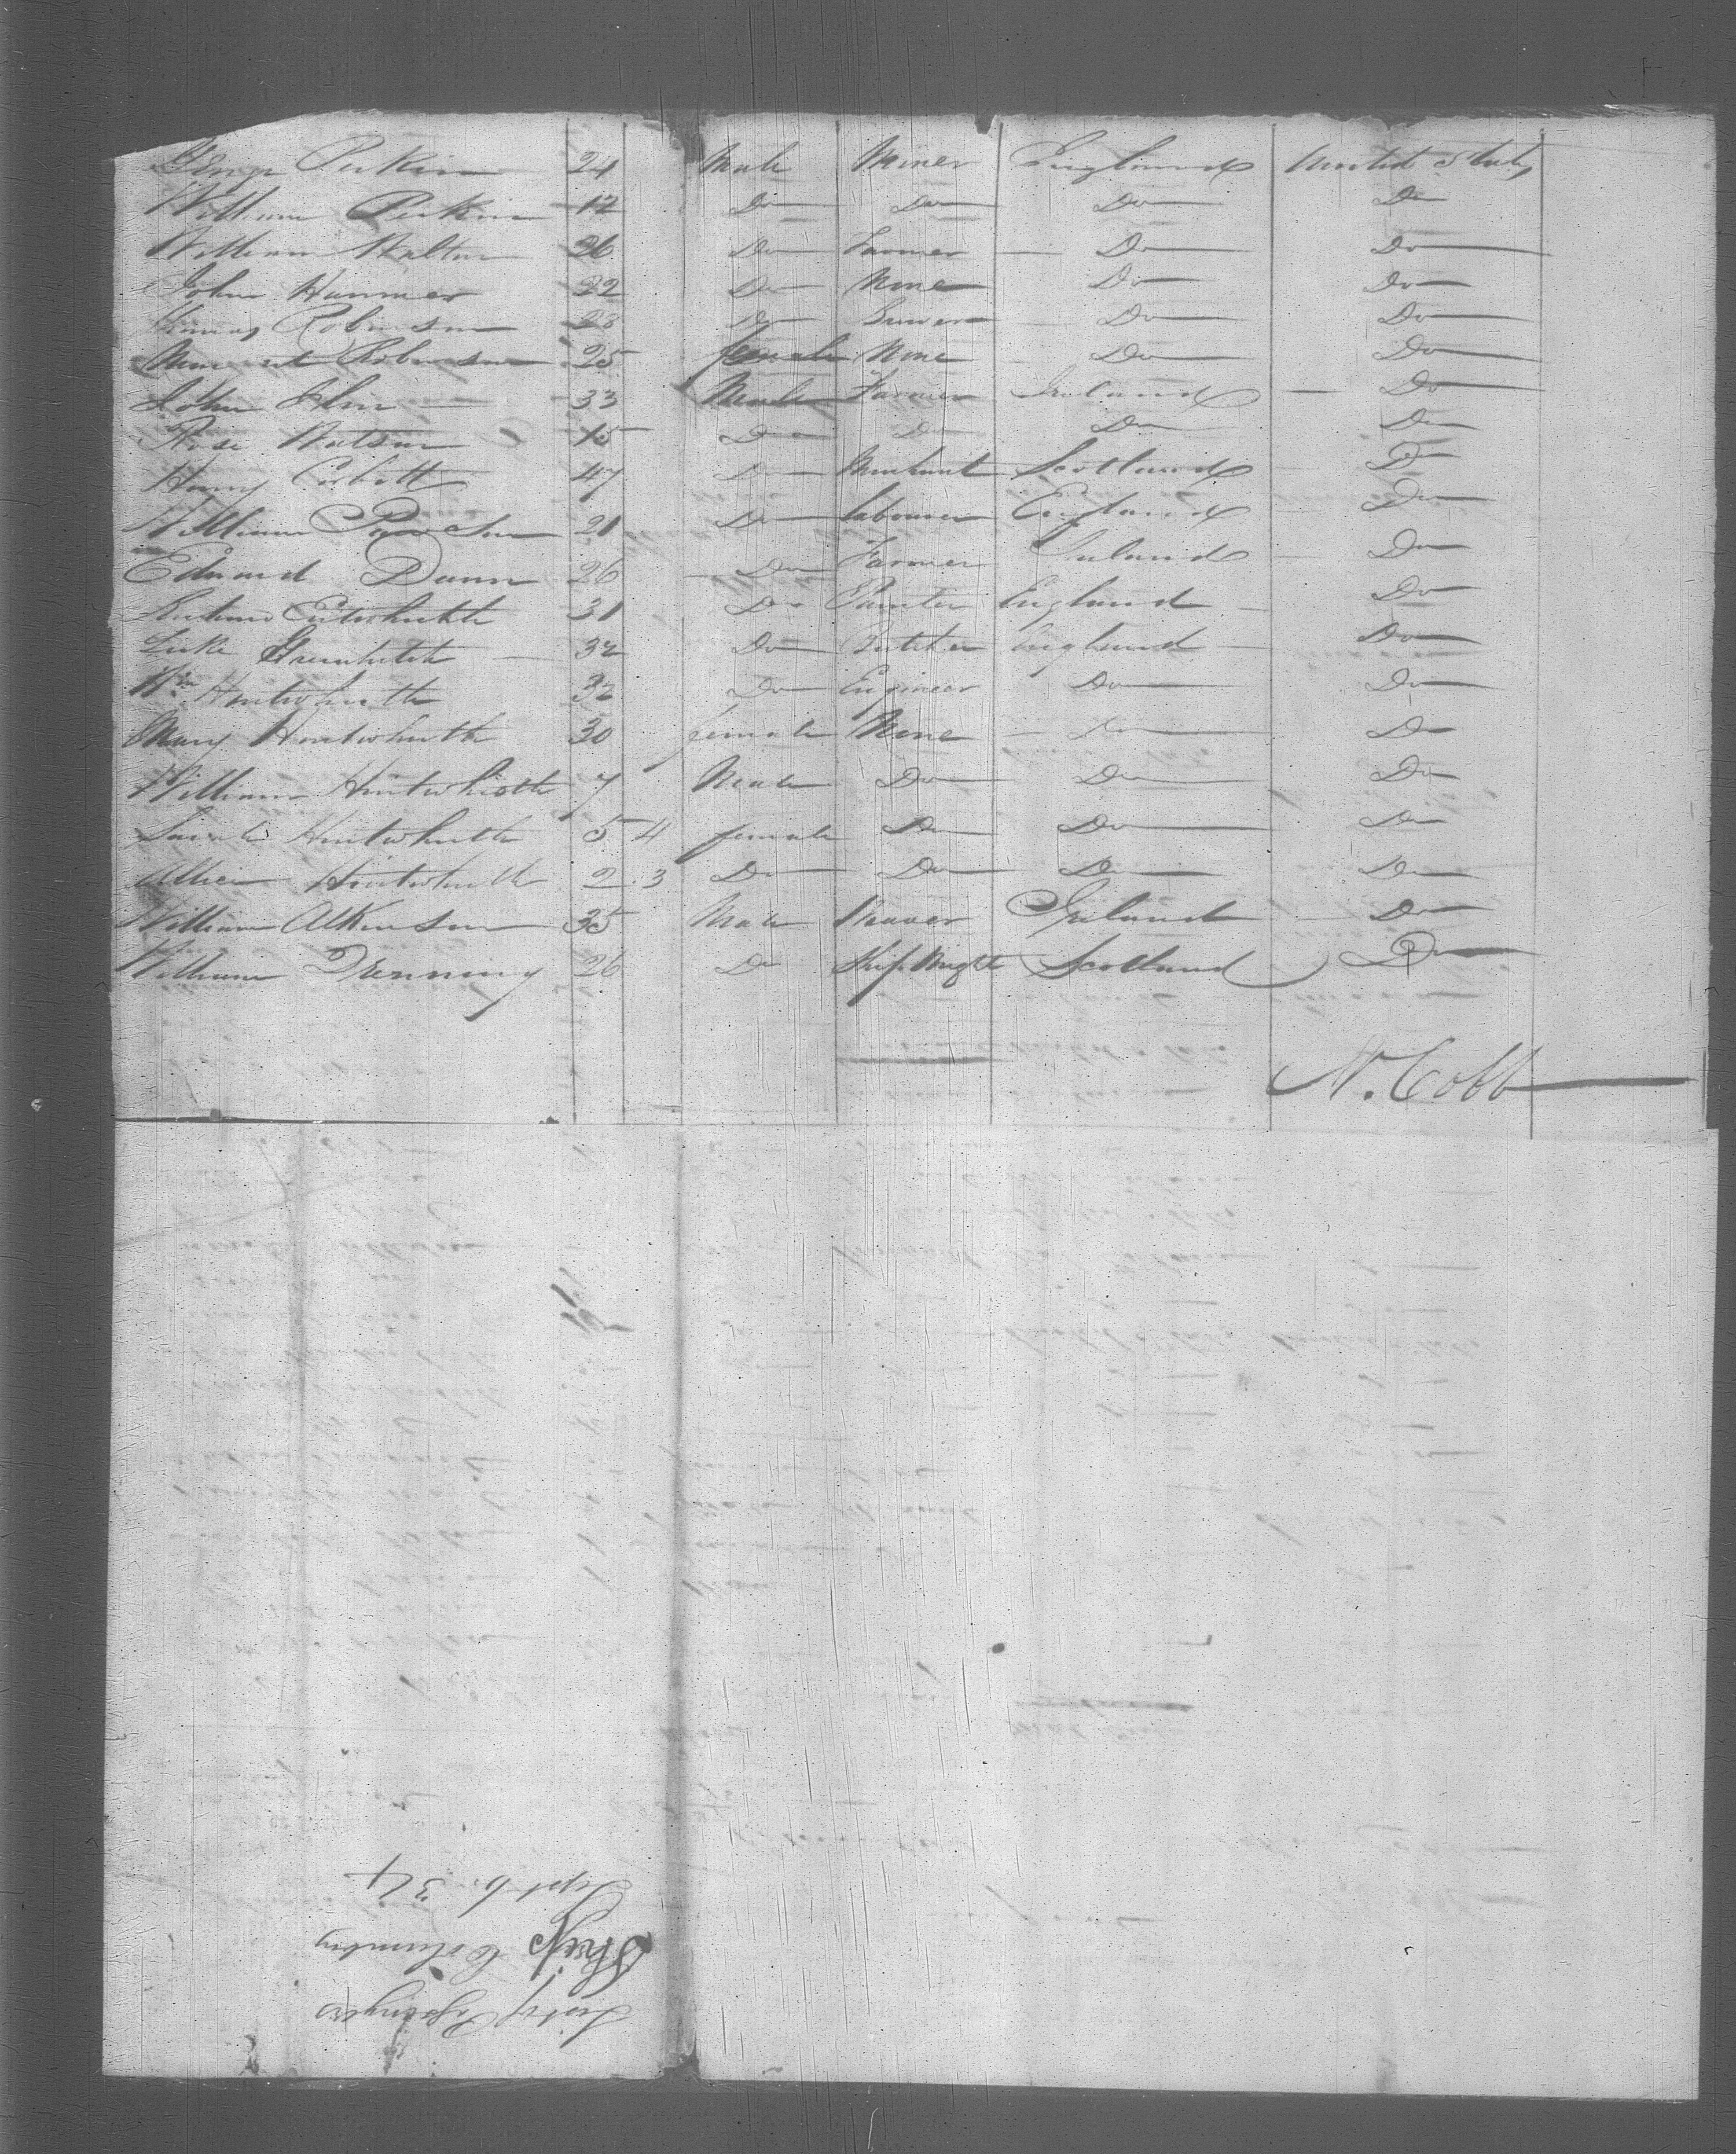 George Perkin 24 Male Miner England United States
William Perkin 12 Do Do Do Do
William Walton 26 Do Farmer Do Do
John Hammer 22 Do None Do Do
Robinson 28 Do Do Do
Margaret Robinson 25 female None Do Do
John 33 Male Farmer Ireland Do
Rose Watson 15 Do Do Do Do
Henry Corbett 47 Do Merchant Scotland Do
William 21 Do Labourer England Do
Edward Dunn 26 Do Farmer Ireland Do
31 Do Painter England Do
Luke 32 Do Butcher England Do
Wm Hintwhistle 32 Do Engineer Do Do
Mary Hintwhistle 30 female None Do Do
William Hintwhistle 7 Male Do Do Do
Sarah Hintwhistle 5 4 female Do Do Do
Allice Hintwhistle 2 3 Do Do Do Do
William Atkinson 35 Male Weaver Ireland Do
William Drenning 26 Do Ship Wright Scotland Do
N. Cobb
List of Passengers
Ship Columbus
Sept 6. 34